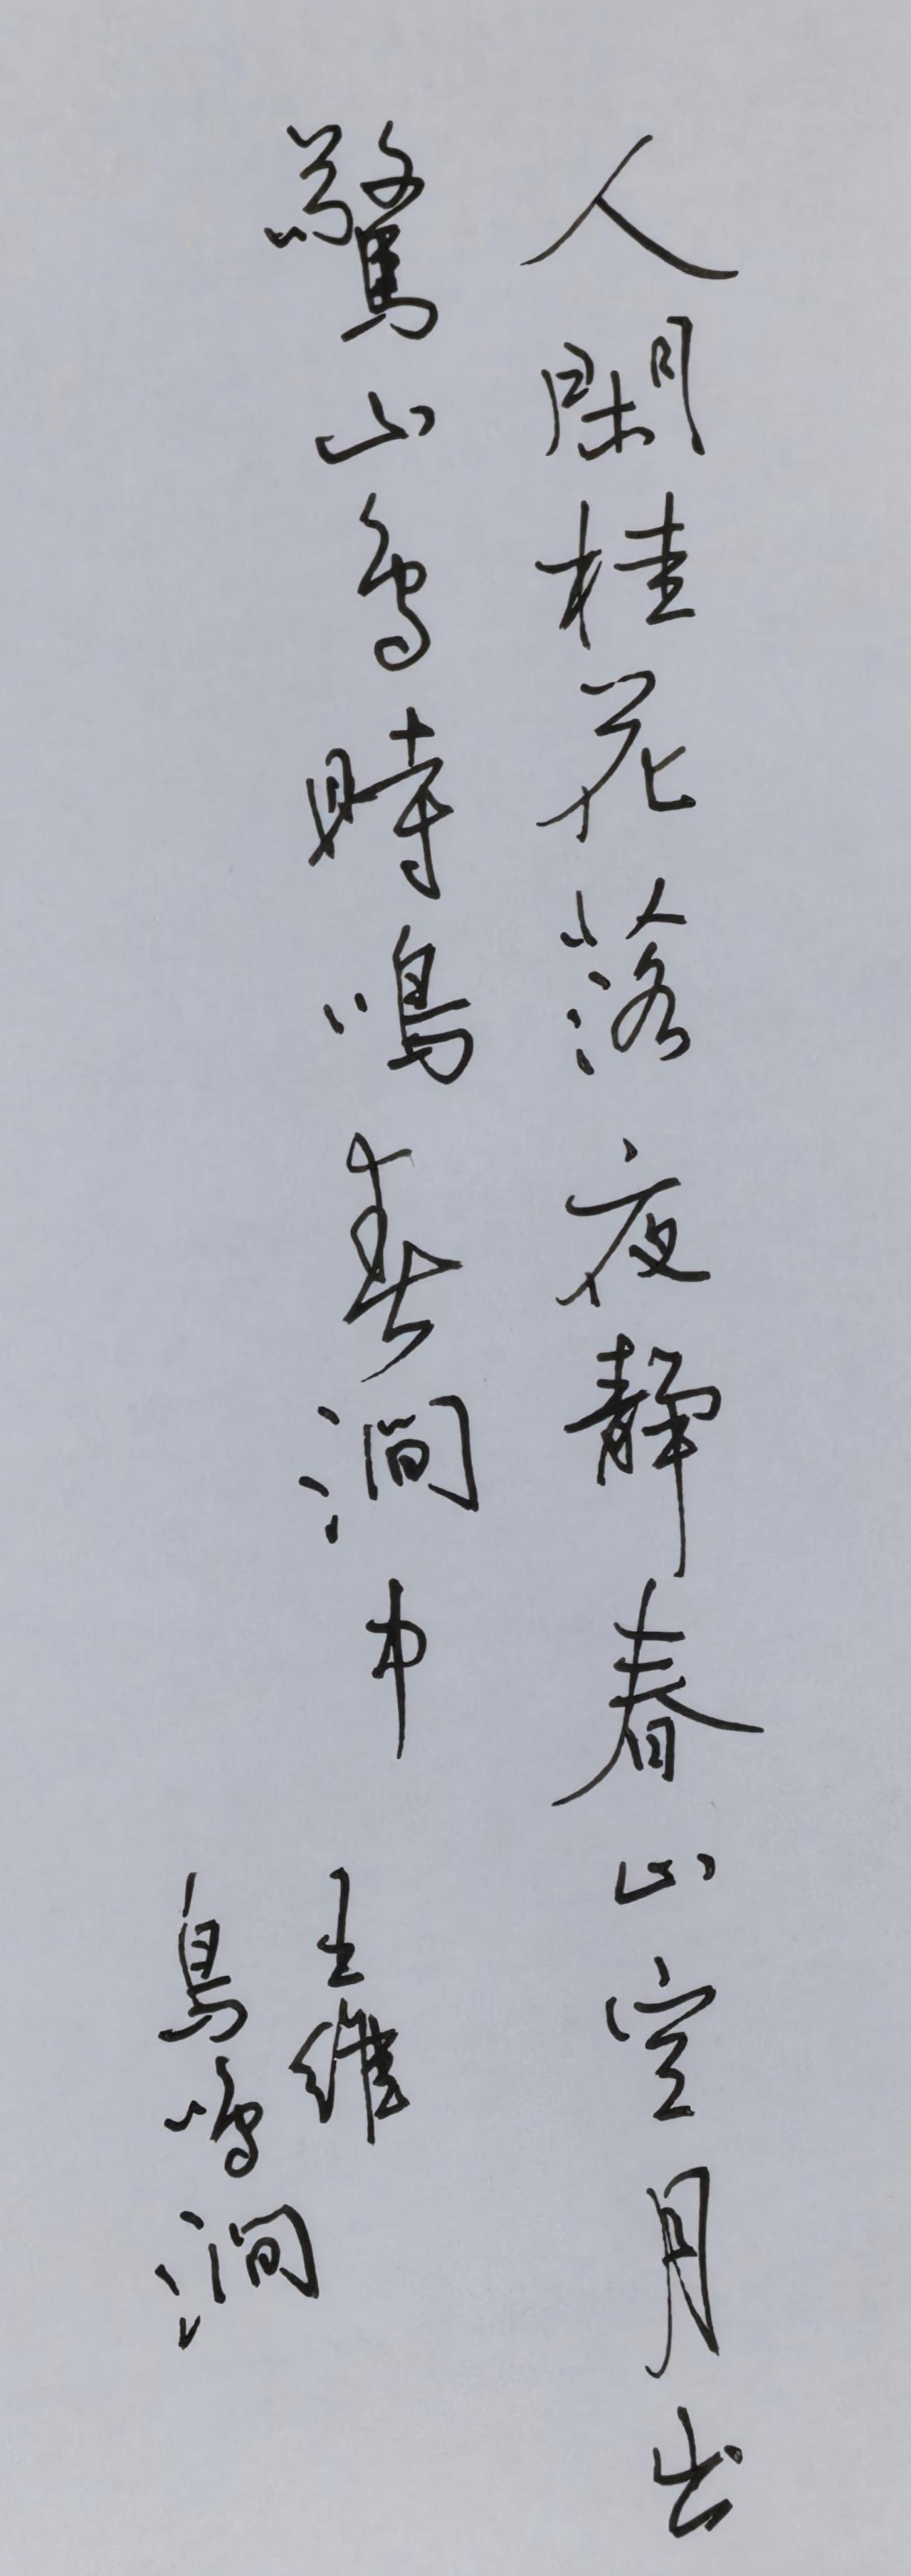 人閑桂花落夜靜春山空月出
驚山鳥時鳴春澗中
王維
鳥鳴澗